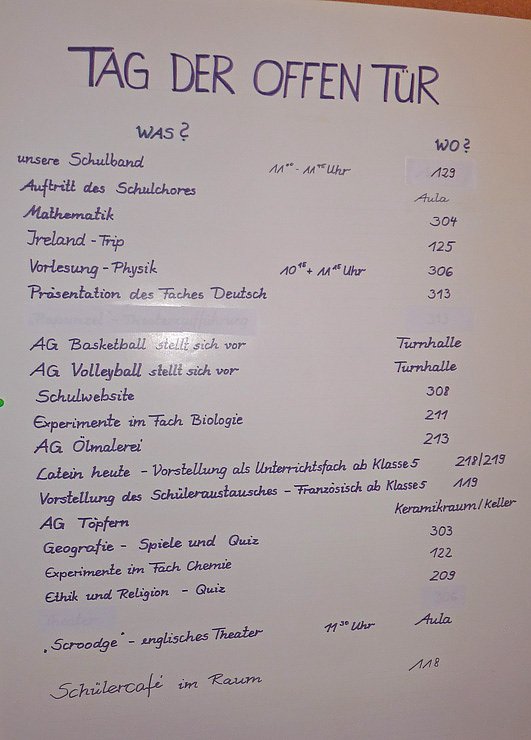 TAG DER OFFEN TÜR
WAS? WO?
unsere Schulband 11⁰⁰ - 11⁴⁵ Uhr 129
Auftritt des Schulchores Aula
Mathematik 304
Ireland - Trip 125
Vorlesung - Physik 10¹⁵ + 11¹⁵ Uhr 306
Präsentation des Faches Deutsch 313
AG Basketball stellt sich vor Turnhalle
AG Volleyball stellt sich vor Turnhalle
Schulwebsite 308
Experimente im Fach Biologie 211
AG Ölmalerei 213
Latein heute - Vorstellung als Unterrichtsfach ab Klasse 5 218/219
Vorstellung des Schüleraustausches - Französisch ab Klasse 5 119
AG Töpfern Keramikraum/Keller
Geografie - Spiele und Quiz 303
Experimente im Fach Chemie 122
Ethik und Religion - Quiz 209
Theater 306
„Scroodge" - englisches Theater 11³⁰ Uhr Aula
Schülercafé im Raum 118